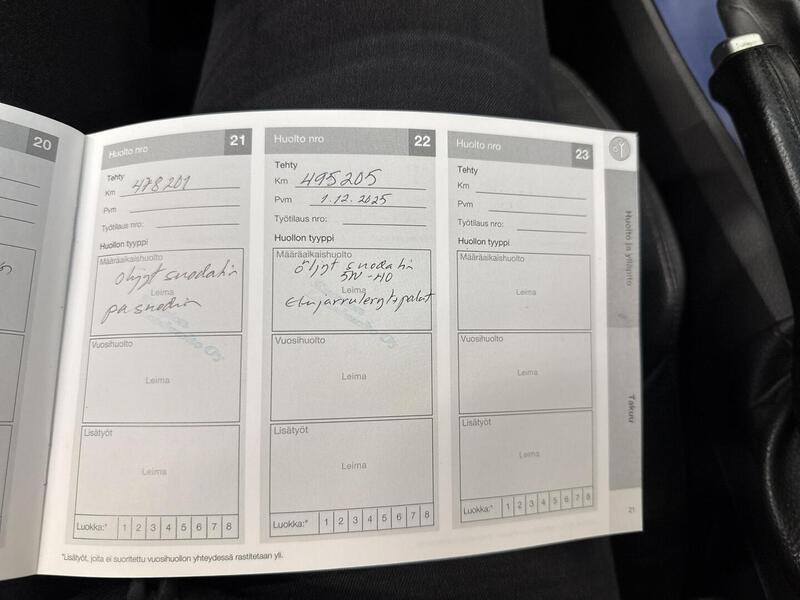 20
Huolto nro 21
Tehty
Km 478201
Pvm
Työtilaus nro:
Huollon tyyppi
Määräaikaishuolto
öljyt suodatin
Leima
Vuosihuolto
Leima
Lisätyöt
Leima
Luokka:* 1 2 3 4 5 6 7 8
Huolto nro 22
Tehty
Km 495205
Pvm 1.12.2025
Työtilaus nro:
Huollon tyyppi
Määräaikaishuolto
öljyt suodatin
5W-40
Leima
Etujarrulevyt+palat
Vuosihuolto
Leima
Lisätyöt
Leima
Luokka:* 1 2 3 4 5 6 7 8
Huolto nro 23
Tehty
Km
Pvm
Työtilaus nro:
Huollon tyyppi
Määräaikaishuolto
Leima
Vuosihuolto
Leima
Lisätyöt
Leima
Luokka:* 1 2 3 4 5 6 7 8
*Lisätyöt, joita ei suoritettu vuosihuollon yhteydessä rastitetaan yli.
Huolto ja ylläpito
Takuu
21